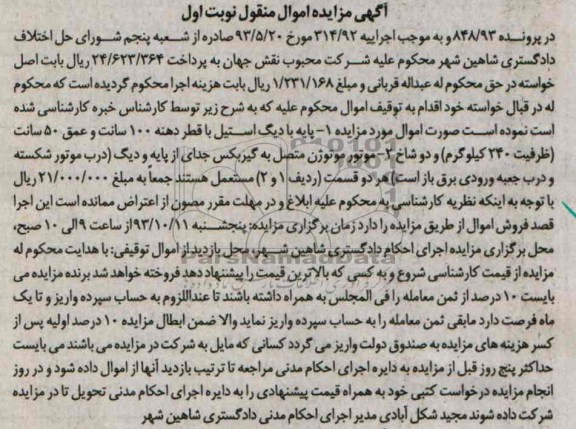 آگهی مزایده اموال منقول نوبت اول
در پرونده ۸۴۸/۹۳ و به موجب اجراییه ۳۱۴/۹۲ مورخ ۹۳/۵/۲۰ صادره از شعبه پنجم شورای حل اختلاف
دادگستری شاهین شهر محکوم علیه شرکت محبوب نقش جهان به پرداخت ۲۴/۶۲۳/۳۶۴ ریال بابت اصل
خواسته در حق محکوم له عبداله قربانی و مبلغ ۱/۲۳۱/۱۶۸ ریال بابت هزینه اجرا محکوم گردیده است که محکوم
له در قبال خواسته خود اقدام به توقیف اموال محکوم علیه که به شرح زیر توسط کارشناس خبره کارشناسی شده
است نموده است صورت اموال مورد مزایده ۱- پایه با دیگ استیل با قطر دهنه ۱۰۰ سانت و عمق ۵۰ سانت
(ظرفیت ۲۴۰ کیلوگرم) و دو شاخ ۲- موتور موتوژن متصل به گیربکس جدای از پایه و دیگ (درب موتور شکسته
و درب جعبه ورودی برق باز است) هر دو قسمت (ردیف ۱ و ۲) مستعمل هستند جمعاً به مبلغ ۲۱/۰۰۰/۰۰۰ ریال
با توجه به اینکه نظریه کارشناسی به محکوم علیه ابلاغ و در مهلت مقرر مصون از اعتراض ممانده است این اجرا
قصد فروش اموال از طریق مزایده را دارد زمان برگزاری مزایده: پنجشنبه ۹۳/۱۰/۱۱ از ساعت ۹ الی ۱۰ صبح،
محل برگزاری مزایده اجرای احکام دادگستری شاهین شهر، محل بازدید از اموال توقیفی: با هدایت محکوم له
مزایده از قیمت کارشناسی شروع و به کسی که بالاترین قیمت را پیشنهاد دهد فروخته خواهد شد برنده مزایده می
بایست ۱۰ درصد از ثمن معامله را فی المجلس به همراه داشته باشند تا عنداللزوم به حساب سپرده واریز و تا یک
ماه فرصت دارد مابقی ثمن معامله را به حساب سپرده واریز نماید والا ضمن ابطال مزایده ۱۰ درصد اولیه پس از
کسر هزینه های مزایده به صندوق دولت واریز می گردد کسانی که مایل به شرکت در مزایده می باشند می بایست
حداکثر پنج روز قبل از مزایده به دایره اجرای احکام مدنی مراجعه تا ترتیب بازدید آنها از اموال داده شود و در روز
انجام مزایده درخواست کتبی خود به همراه قیمت پیشنهادی را به دایره اجرای احکام مدنی تحویل تا در مزایده
شرکت داده شوند مجید شکل آبادی مدیر اجرای احکام مدنی دادگستری شاهین شهر
ParsNamadData